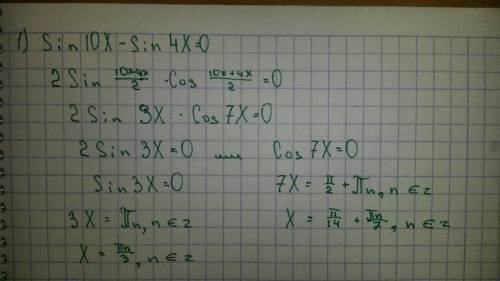 1) Sin 10x - Sin 4x = 0
2 Sin (10x-4x)/2 · Cos (10x+4x)/2 = 0
2 Sin 3x · Cos 7x = 0
2 Sin 3x = 0 или Cos 7x = 0
Sin 3x = 0 7x = π/2 + πn, n ∈ z
3x = πn, n ∈ z x = π/14 + πn/7, n ∈ z
x = πn/3, n ∈ z